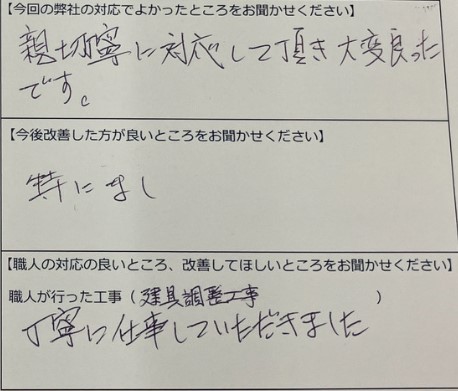 【今回の弊社の対応でよかったところをお聞かせください】
親切丁寧に対応して頂き大変良った
です。
【今後改善した方が良いところをお聞かせください】
特になし
【職人の対応の良いところ、改善してほしいところをお聞かせください】
職人が行った工事（建具調整工事）
丁寧に仕事していただきました